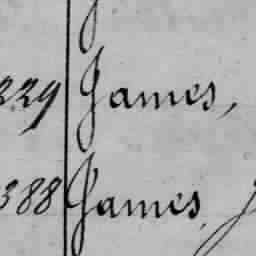 329 James,
388 James, J